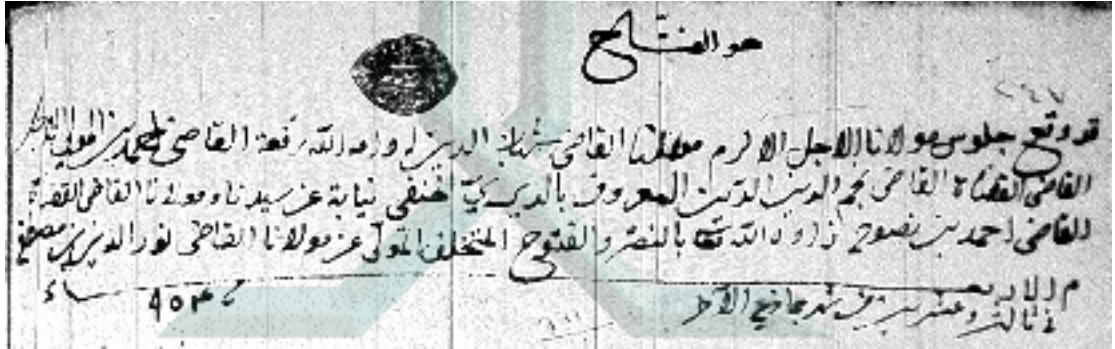 هو الفتاح
قد وقع جلوس مولانا الاجل الاكرم مولانا القاضي شهاب الدين ادامه الله رفعة القاضي احمد بن المولى
القاضي القضاة القاضي نجم الدين الدين المعروف بالديري الحنفي نيابة عن سيدنا ومولانا القاضي القضاة
القاضي احمد بن نصوح زاده الله تعالى بالنصر والفتوح المتخلف المتولي عن مولانا القاضي نور الدين بن مصلح
م الاربعاء
في ثالث وعشرين من شهر جمادى الآخر
٩٥٣